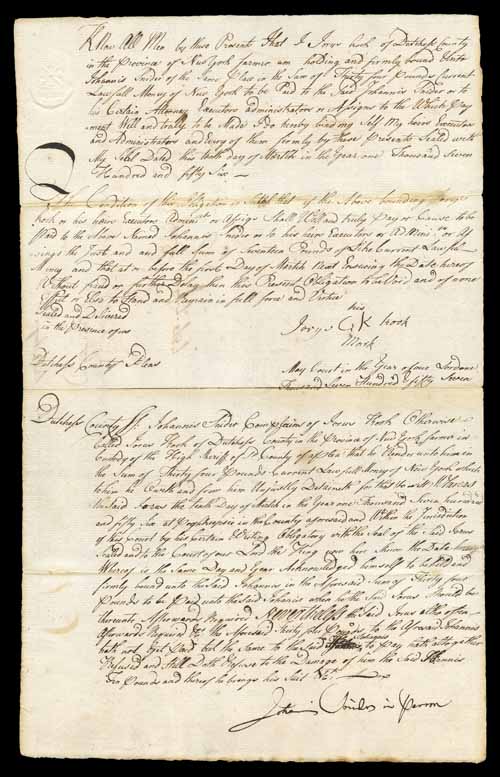 Know All Men by these Presents That I Jorys hook of Dutchess County
in the Province of New York farmer am holding and firmly bound Unto
Johannis Snider of the Same Place in the Sum of Thirty four Pounds Current
Lawfull Money of New York to be Paid to the Said Johannis Snider or to
his Certain Attorney Executors administrators or Assigns to the Which Pay
ment Well and truly to be Made I do hereby bind my Self My heirs Executors
and Administrators and Every of them firmly by these Presents Sealed with
My Seal Dated this tenth day of March in the year one Thousand Seven
Hundred and fifty Six
The Condition of this Obligation is Such that if the Above bounding Jorys
hook or his heirs Executors Administ or Assigns Shall Well and truly Pay or Cause to be
Paid to the Above Named Johannis Snider or to his heirs Executors or Admini or As
signs the Just and and full Sum of Seventeen Pounds of Like Current Lawfull
Money and that at or before the first Day of March Next Ensuing the Date hereof
Without fraud or further Delay then this Present Obligation to be Void and of none
Effect or Else to Stand and Remain in full force and Virtue
Sealed and Delivered
in the Presence of us
his
Jorys GK hook
Mark
Dutchess County Pleas
May Court in the Year of our Lord one
Thousand Seven Hundred & fifty Seven
Dutchess County Ss. Johannis Snider Complains of Jorus Hook Otherwise
Called Jorus Hook of Dutchess County in the Province of New York farmer in
Custody of the High Sheriff of Sd County of a plea that he Render unto him
the Sum of Thirty four Pounds Current Lawfull Money of New York which
to him he Oweth and from him Unjustly Detaineth for that to wit Whereas
the Said Jorus the tenth Day of March in the Year one Thousand Seven hundred
and fifty Six at Poghkepsie in the County aforesaid and Within the Jurisdiction
of this Court by his Certain Writing Obligatory with the Seal of the Said Jorus
Sealed and to the Court of our Lord the King now here Shewn the Date
Whereof is the Same Day and Year Acknowledged himself to be held and
firmly bound unto the Said Johannis in the Aforesaid Sum of Thirty four
Pounds to be Paid unto the Said Johannis when he the Said Jorus Should be
thereunto Afterwards Required Nevertheless the Said Jorus altho often
Afterwards Required &c the Aforesaid Thirty four Pounds to the Aforesaid Johannis
hath not Yet Paid but the Same to the Said Johannis to Pay hath altogether
Refused and Still Doth Refuse to the Damage of him the Said Johannis
Ten Pounds and thereof he brings his Suit &c
in Person